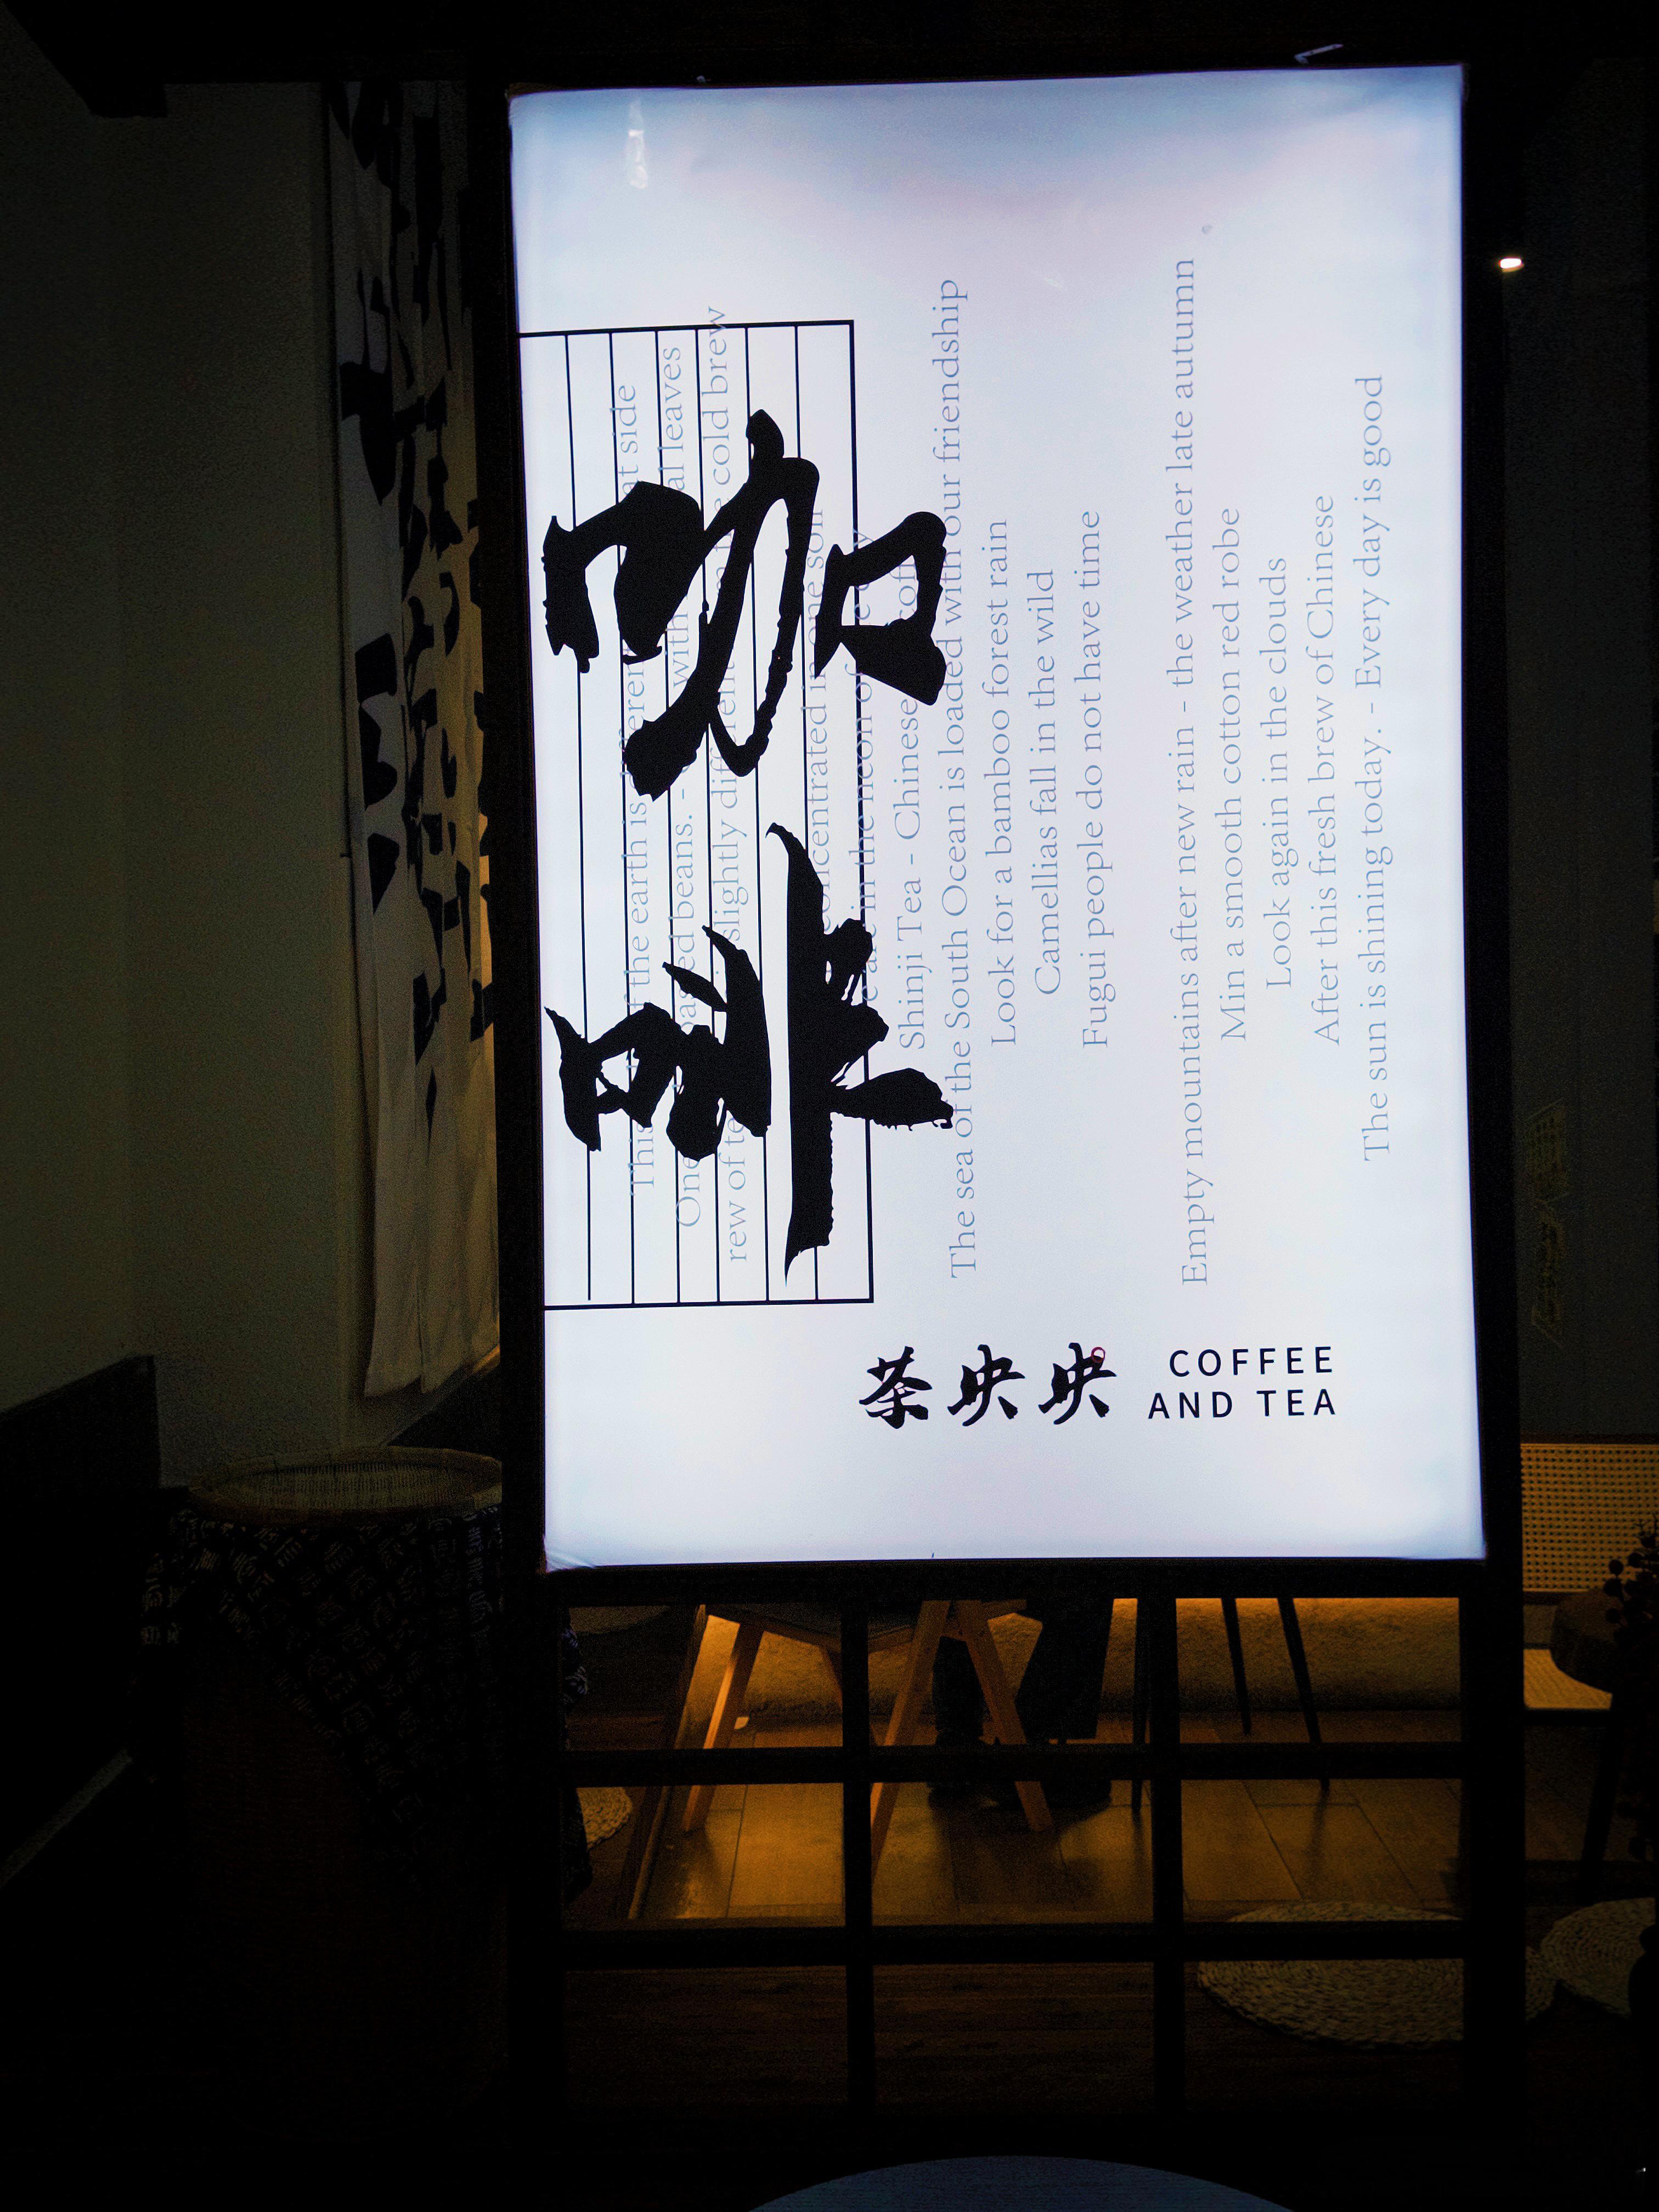 咖啡
This the earth is side
One beans. - with leaves
rew of slightly cold brew
in the neon of
Shinji Tea - Chinese
The sea of the South Ocean is loaded with our friendship
Look for a bamboo forest rain
Camellias fall in the wild
Fugui people do not have time
Empty mountains after new rain - the weather late autumn
Min a smooth cotton red robe
Look again in the clouds
After this fresh brew of Chinese
The sun is shining today. - Every day is good
茶央央
COFFEE
AND TEA